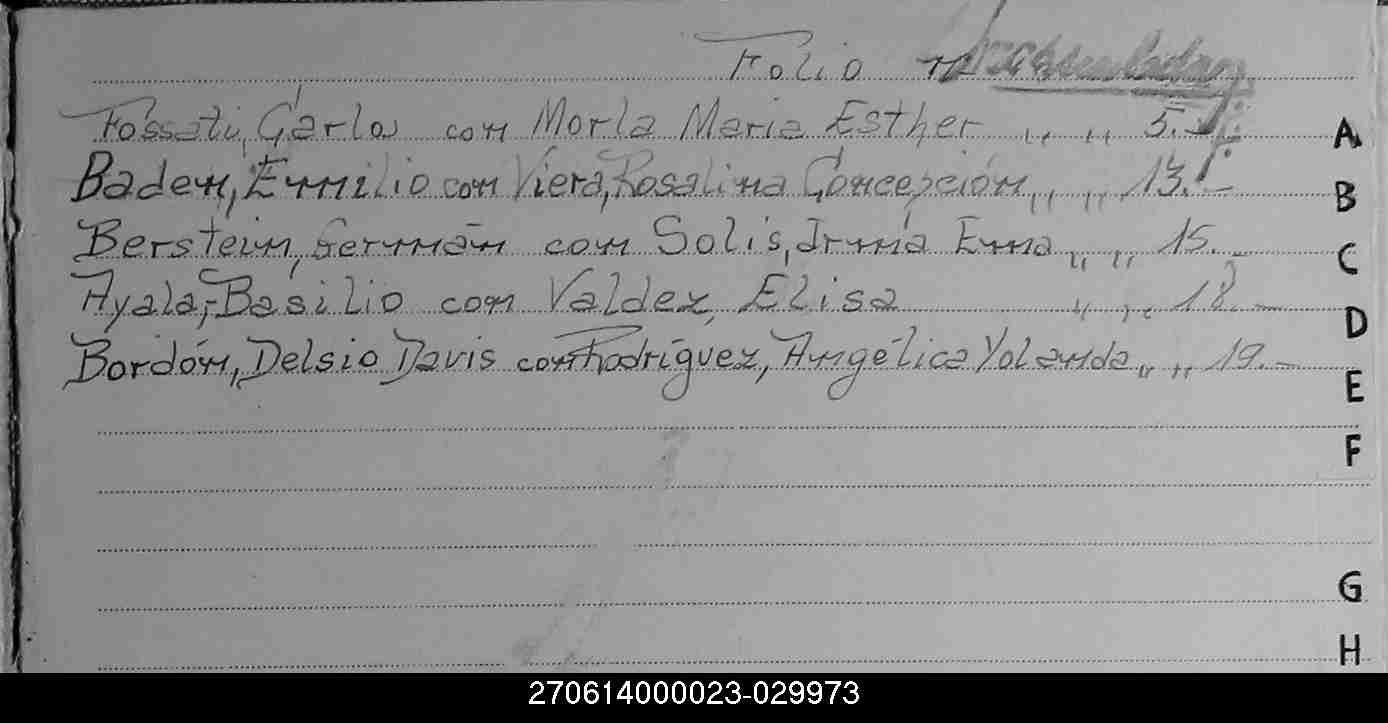 Folio nº
Fossati, Carlos con Morla Maria Esther " " 5.-
Baden, Emilio con Viera, Rosalina Concepción " " 13.-
Berstein, Germán con Solis, Irma Ema " " 15.-
Ayala, Basilio con Valdez, Elisa " " 18.-
Bordón, Delsio Davis con Rodríguez, Angélica Yolanda " " 19.-
A
B
C
D
E
F
G
H
270614000023-029973